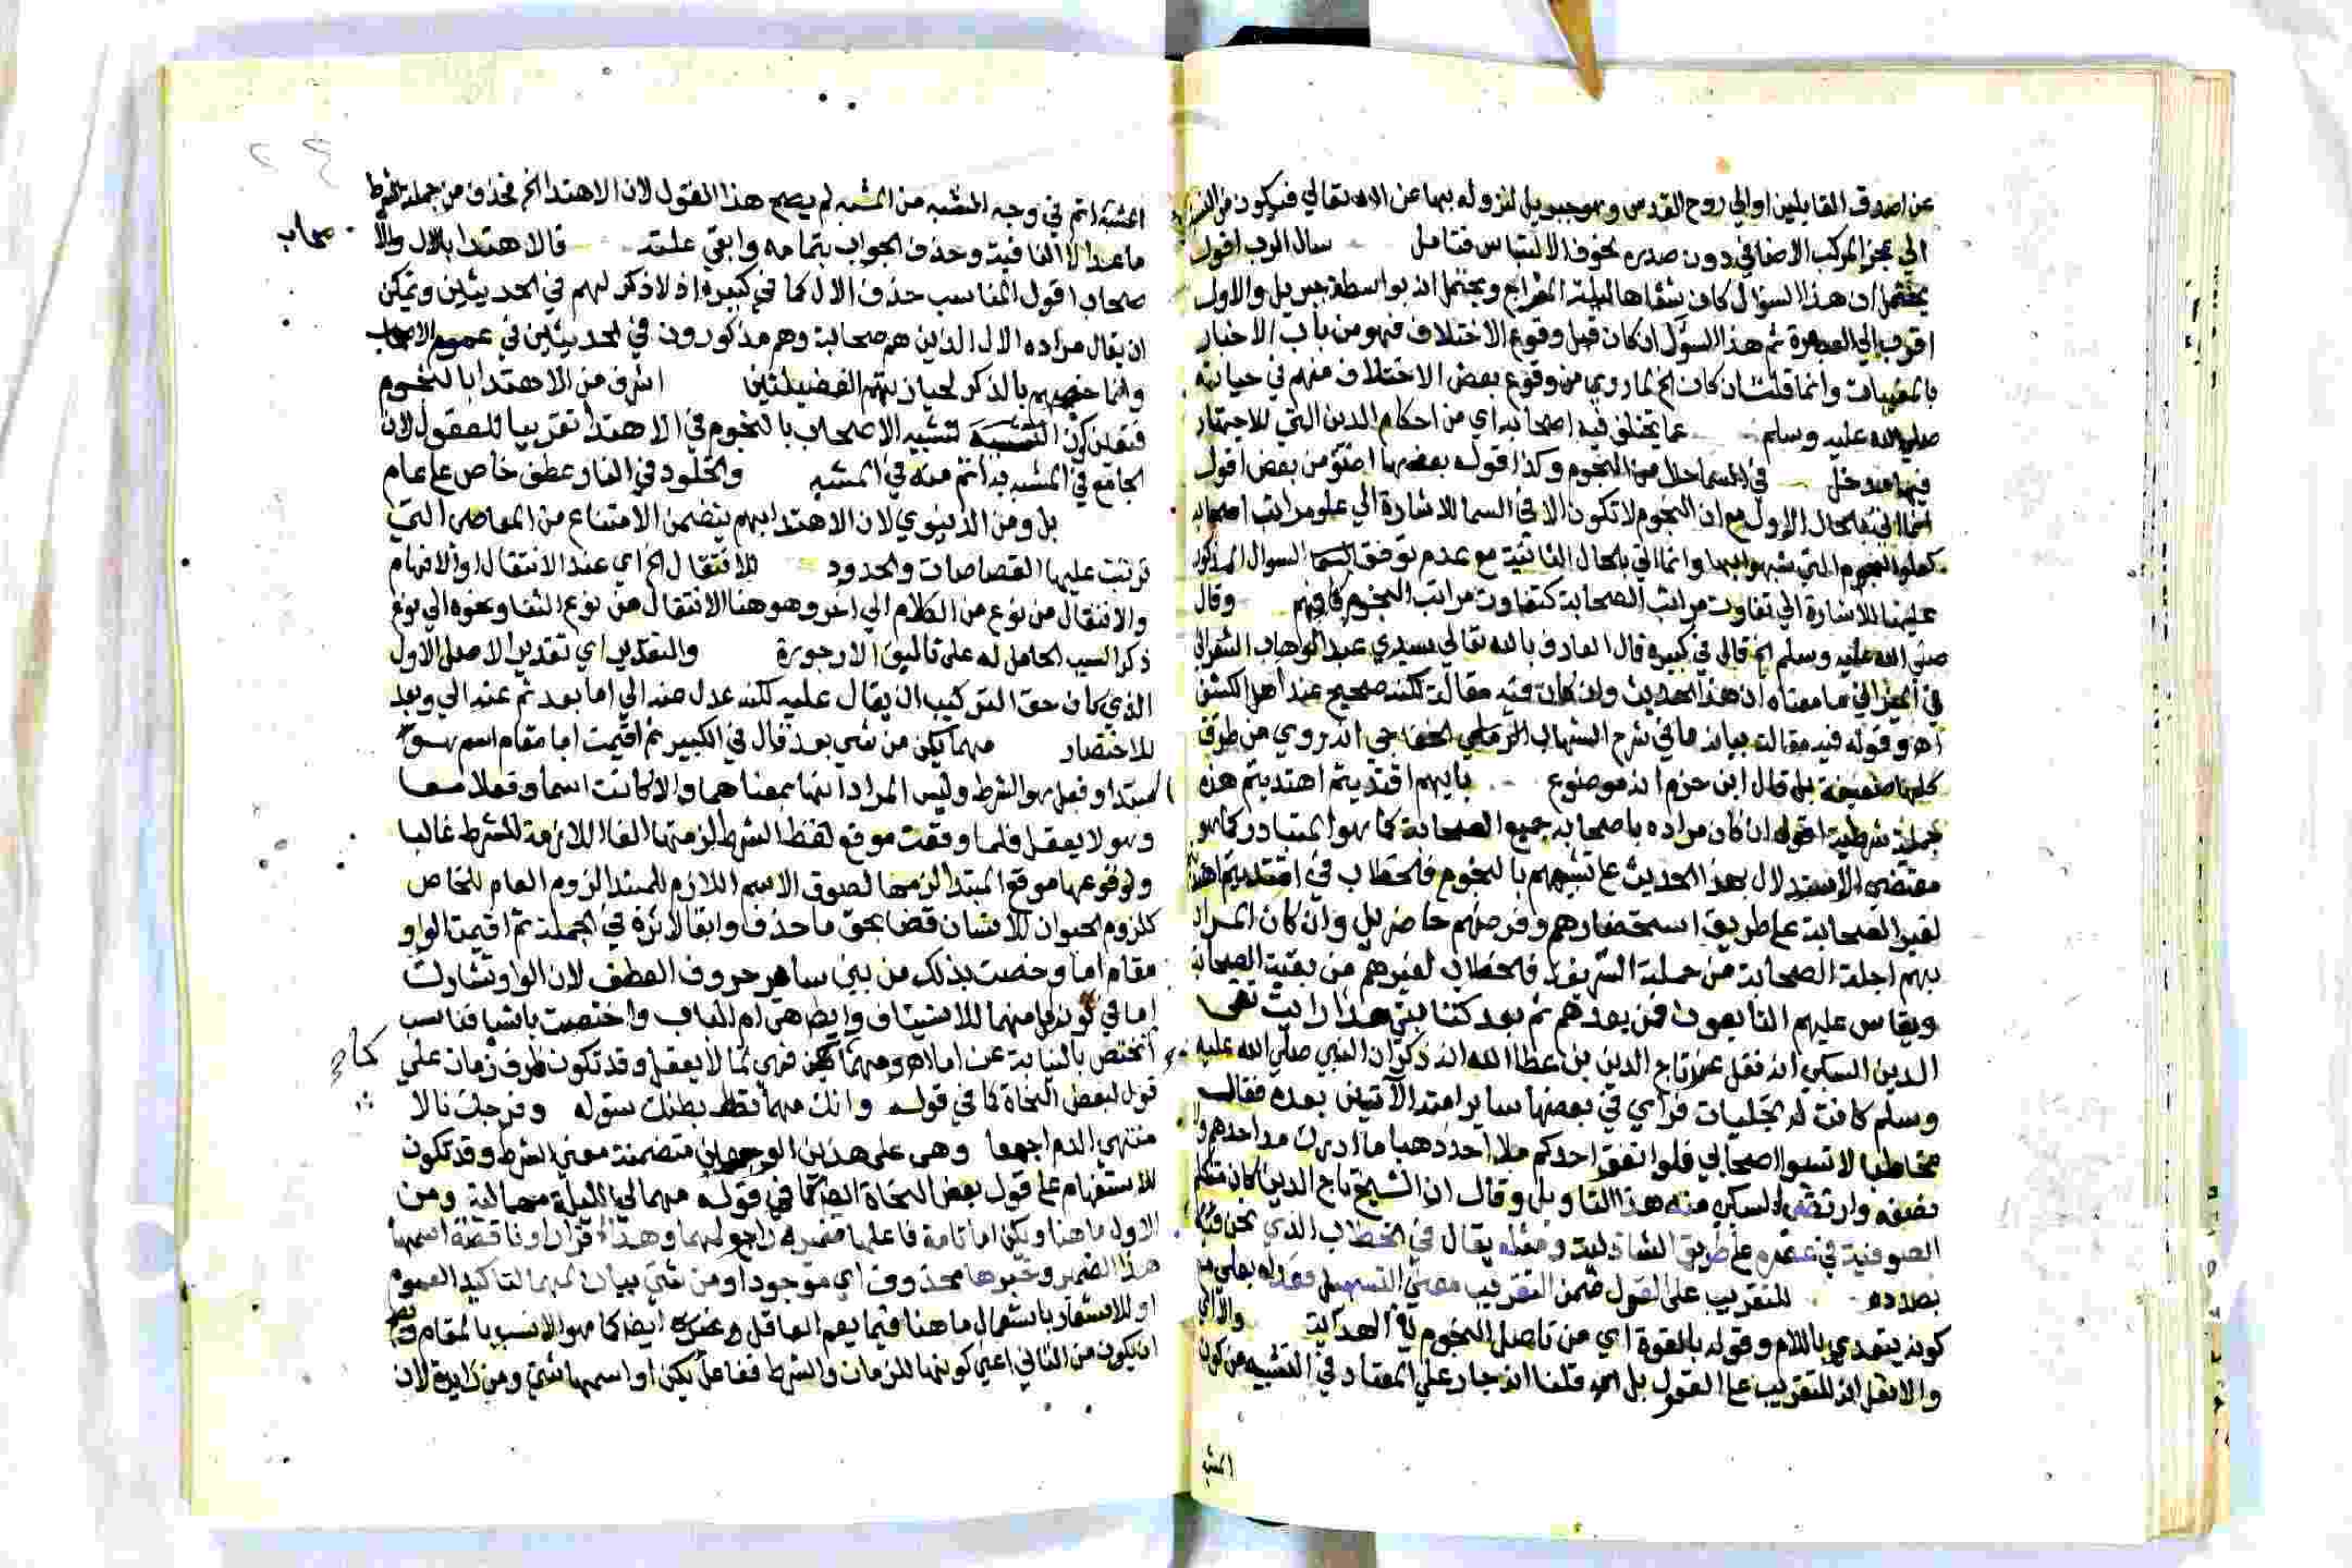 عن اصدق القايلين او الي روح القدس وهو جبريل لنزوله بها عن الله تعالي فيكون من
الي عجز المركب الاضافي دون صدره لخوف الالتباس فتامل سال الرب اقول
يحتمل ان هذا السؤال كان شفاها ليلة المعراج ويحتمل انه بواسطة جبريل والاول
اقرب الي ثم هذا السؤال ان كان قبل وقوع الاختلاف فهو من باب الاخبار
بالمغيبات وانما قلت ان كان الخ لما روي من وقوع بعض الاختلاف منهم في حياته
صلي الله عليه وسلم عما يختلف فيه اصحابه اي من احكام الدين التي للاجتهاد
فيها مدخل في السما حال من النجوم وكذا قوله بعضها اضؤ من بعض اقول
انما اتي بالحال الاول مع ان النجوم لا تكون الا في السما للاشارة الي علو مراتب اصحابه
كعلو النجوم التي شبهوا بها وانما اتي بالحال الثانية مع عدم توقف السؤال
عليها للاشارة الي تفاوت مراتب الصحابة كتفاوت مراتب النجوم فافهم وقال
صلي الله عليه وسلم الخ قال في كبيره قال العارف بالله تعالي سيدي عبد الوهاب الشعراني
في الميزان ما معناه ان هذا الحديث وان كان فيه مقال لكنه صحيح عند اهل الكشف
اه وقوله فيه مقال بيانه ما في شرح الشهاب الخفاجي انه روي من طرق
كلها ضعيفة بل قال ابن حزم انه موضوع بايهم اقتديتم اهتديتم هذه
جملة شرطية اقول ان كان مراده باصحابه جميع الصحابة كما هو المتبادر كما هو
مقتضي الاستدلال بهذا الحديث علي تشبيههم بالنجوم فالخطاب في اقتديتم
لغير الصحابة علي طريق استحضارهم وفرضهم حاضرين وان كان المراد
بهم اجلة الصحابة من حملة الشريعة فالخطاب لغيرهم من بقية الصحابة
ويقاس عليهم التابعون فمن بعدهم ثم بعد كتابتي هذا رايت تقي
الدين السبكي انه نقل عن تاج الدين بن عطا الله انه ذكر ان النبي صلي الله عليه
وسلم كانت له تجليات فراي في بعضها ساير امته الآتين بعده فقال
مخاطبا لا تسبوا اصحابي فلو انفق احدكم مثل احد ذهبا ما ادرك مد احدهم ولا
نصيفه وارتضي السبكي منه هذا التاويل وقال ان الشيخ تاج الدين كان متكلم
الصوفية في عصره علي طريق الشاذلية ومثله يقال في الخطاب الذي نحن فيه
بصدده للتقريب علي العقول ضمن التقريب معني التسهيل فعداه بعلي مع
كونه يتعدي باللام وقوله بالقوة اي من تاصل النجوم في الهداية والا اي
والا نقل انه للتقريب علي العقول بل قلنا انه جار علي المعتاد في التشبيه من كون
المشبه
المشبه اتم في وجه المشبه من المشبه لم يصح هذا القول لان الاهتدا الخ فحذف من جملة الشرط
ما عدا لا النافية وحذف الجواب بتمامه وابقي علته فالاهتدا بالال والا
صحاب
صحاب اقول المناسب حذف الال كما في كبيره اذ لا ذكر لهم في الحديثين ويمكن
ان يقال مراده الال الذين هم صحابة وهم مذكورون في الحديثين في عموم الاصحاب
وانما خصهم بالذكر لحيازتهم الفضيلتين اشرف من الاهتدا بالنجوم
فتشبيه الاصحاب بالنجوم في الاهتدا تقريبا للعقول لان
الجامع في المشبه به اتم منه في المشبه والخلود في النار عطف خاص علي عام
بل ومن الدنيوي لان الاهتدا بهم يتضمن الامتناع من المعاصي التي
ترتبت عليها القصاصات والحدود للانتقال الخ اي عند الانتقال او الافهام
والانتقال من نوع من الكلام الي اخر وهو هنا الانتقال من نوع الثنا ونحوه الي نوع
ذكر السبب الحامل له علي تاليف الارجوزة والتقدير اي تقدير الاصل الاول
الذي كان حق التركيب ان يقال عليه لكنه عدل عنه الي اما بعد ثم عنه الي وبعد
للاختصار مهما يكن من شي بعد قال في الكبير ثم اقيمت اما مقام اسم هو
المبتدا وفعل هو الشرط وليس المراد انها بمعناهما والا لكانت اسما وفعلا معا
وهو لا يعقل فلما وقعت موقع لفظ الشرط لزمتها الفا اللازمة للشرط غالبا
ولوقوعها موقع المبتدا لزمها لصوق الاسم اللازم للمبتدا لزوم العام للخاص
كلزوم الحيوان للانسان قضا بحق ما حذف وابقا لاثره في الجملة ثم اقيمت الواو
مقام اما وخصت بذلك من بين ساير حروف العطف لان الواو تشارك
اما في كون كل منهما للاستيناف وايضا هي ام الباب واختصت باشيا فناسب
ان تختص بالنيابة عن اما اه ومهما يكن فهي لما لا يعقل وقد تكون ظرف زمان علي
قول لبعض النحاة كما في قوله وانك مهما تعط بطنك سؤله وفرجك نالا
منتهي الذم اجمعا وهي علي هذين الوجهين متضمنة معني الشرط وقد تكون
للاستفهام علي قول بعض النحاة ايضا كما في قوله مهما لي الليلة مهما ليه ومن
الاول ما هنا ويكن اما تامة فاعلها ضمير راجع لمهما وهذا او ناقصة اسمها
هذا الضمير وخبرها محذوف اي موجودا ومن شي بيان لمهما لتاكيد العموم
او للاشعار باستعمال ما هنا فيما يعم العاقل وغيره ايضا كما هو الانسب بالمقام
ان يكون من الثاني اعني كونها للزمان والشرط ففاعل يكن او اسمها شي ومن زايدة لان